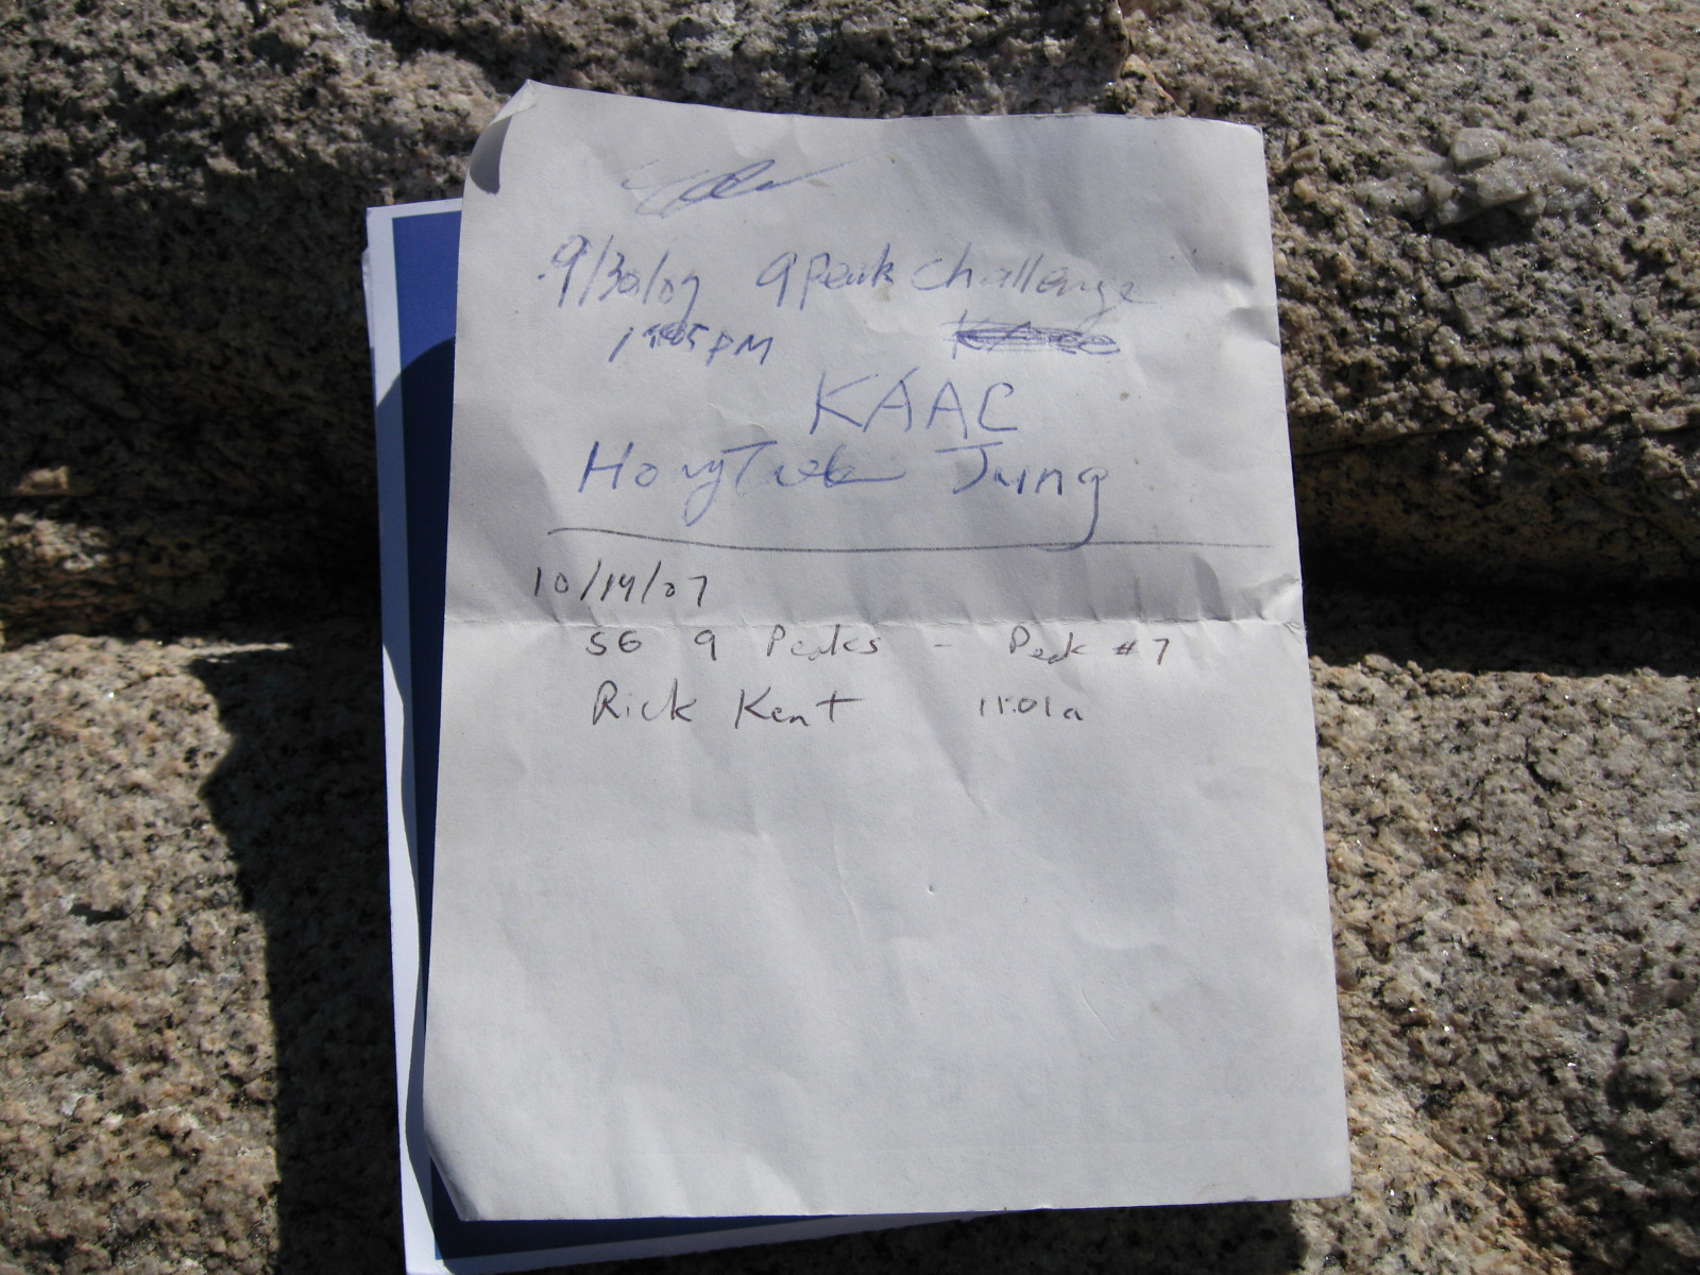 9/30/07 9 Peak Challenge
PM
KAAC
Jung
10/14/07
SG 9 Peaks - Peak #7
Rick Kent 11:01a